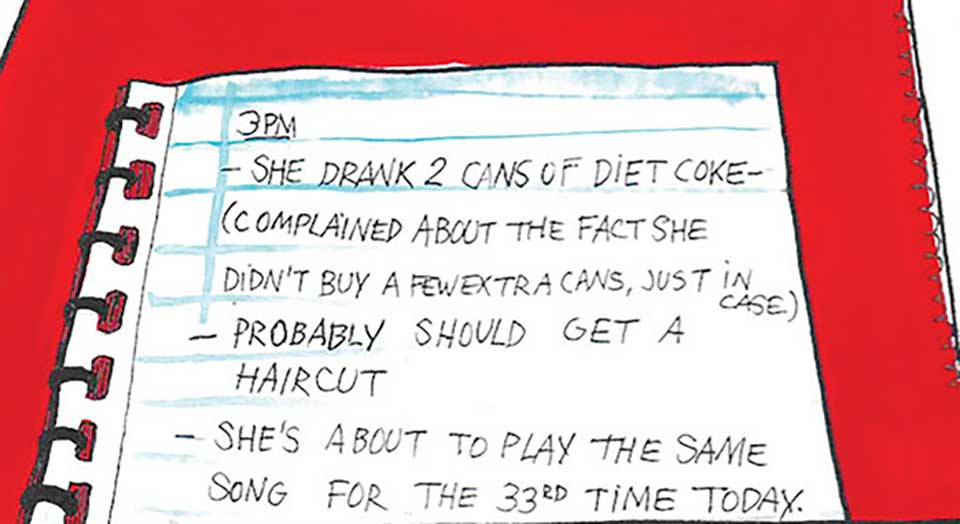 3PM
- SHE DRANK 2 CANS OF DIET COKE-
(COMPLAINED ABOUT THE FACT SHE
DIDN'T BUY A FEW EXTRA CANS, JUST IN
CASE)
- PROBABLY SHOULD GET A
HAIRCUT
- SHE'S ABOUT TO PLAY THE SAME
SONG FOR THE 33RD TIME TODAY.